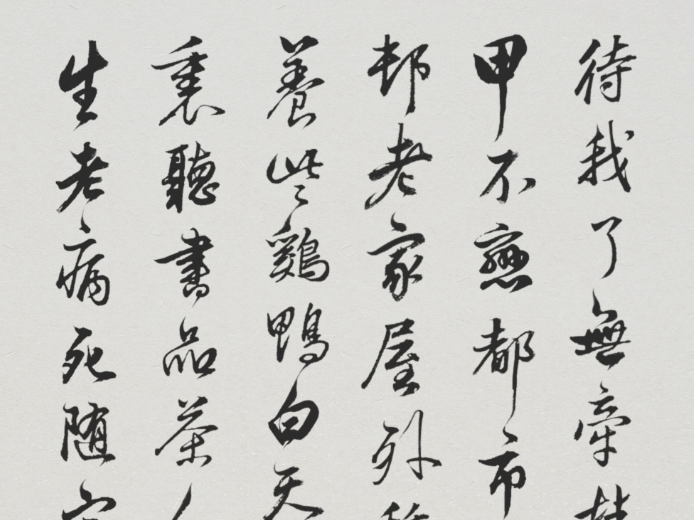 待我了無牽
甲不戀都市
邨老家屋外
養些鷄鴨白天
裏聽書品茶
生老病死随